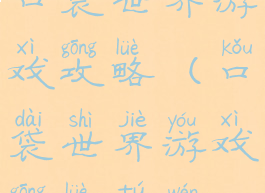 口袋世界游
xì gōng lüè kǒu
戏攻略（口
dài shì jiè yóu xì
袋世界游戏
gōng lüè tú wén